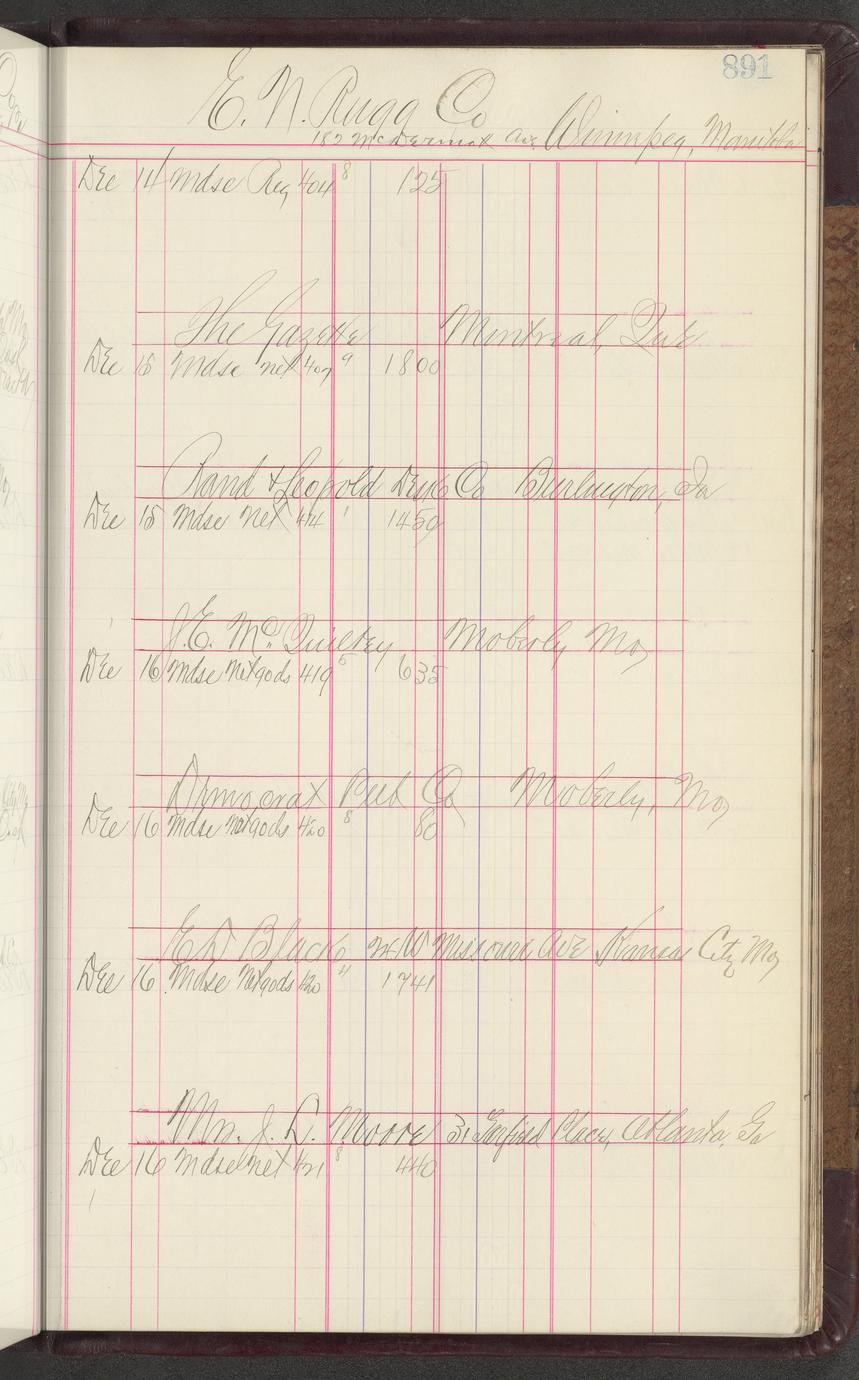 891
E. N. Rugg Co
187 McDermot Ave. Winnipeg, Manitoba
Dec 14 Mdse Reg 404 8 125
The Gazette Montreal, Que
Dec 15 Mdse net 407 9 1800
Rand & Leopold Dept Co Burlington, Ia
Dec 15 Mdse Net 414 1 1450
J. E. McQuitty Moberly Mo
Dec 16 Mdse Netgods 419 5 635
Democrat Pub Co Moberly, Mo
Dec 16 Mdse Netgods 420 8 80
E D Black W Missouri Ave Kansa City Mo
Dec 16 Mdse Netgods 420 4 1741
Mr. J. L. Moore 31 Garfield Place, Atlanta, Ga
Dec 16 Mdse Net 421 8 440